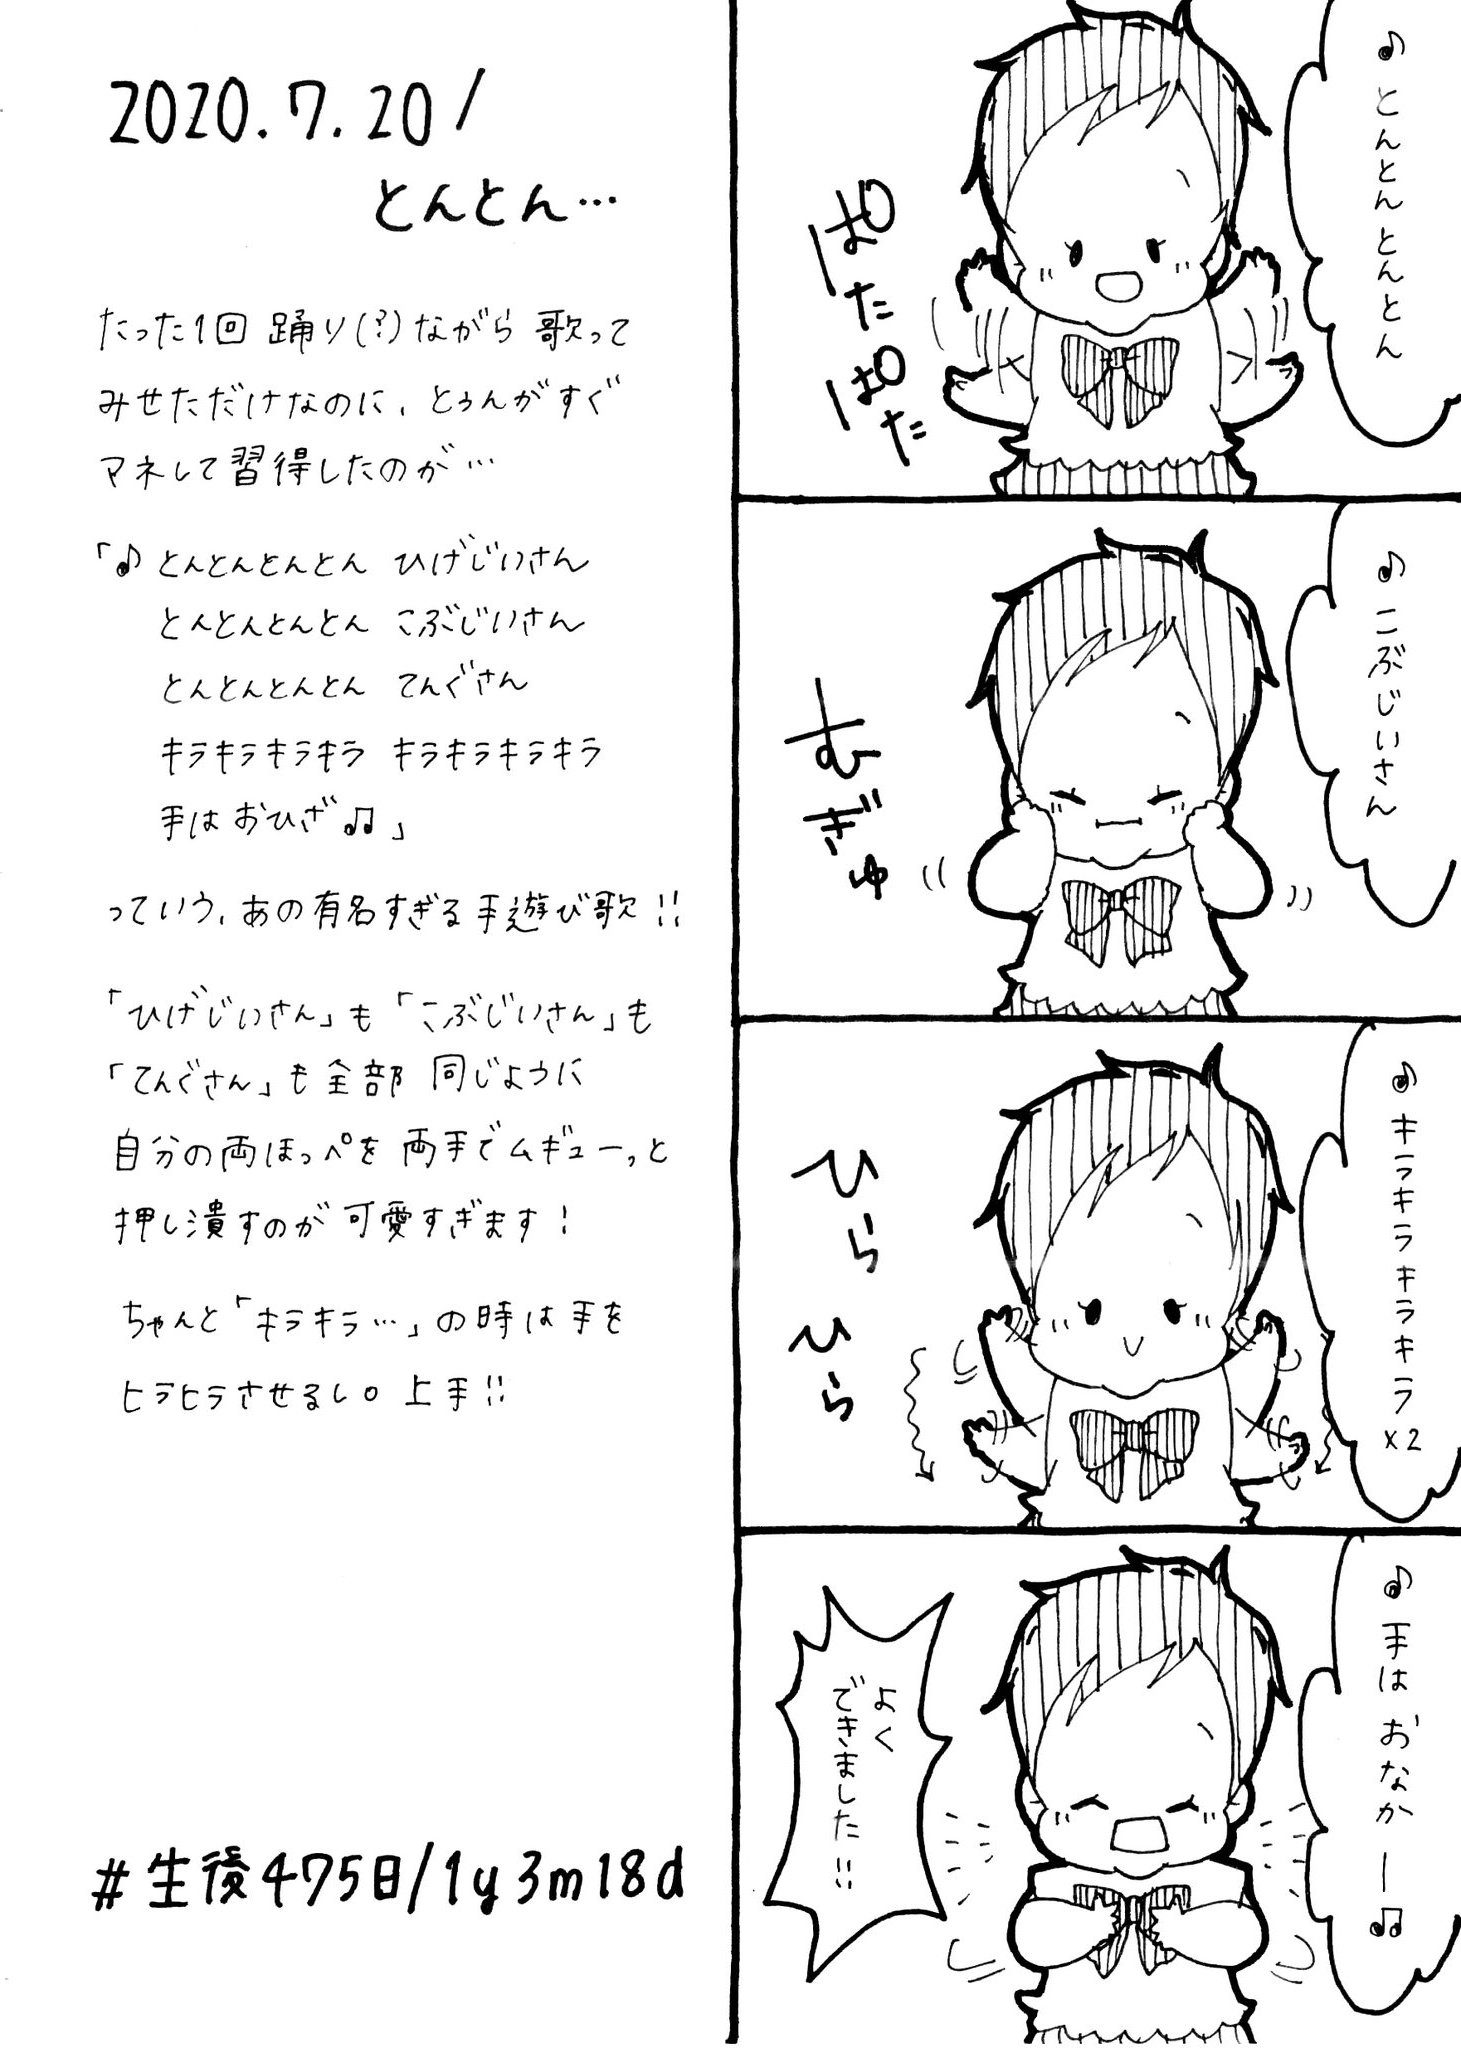 2020.7.20/
とんとん…
たった1回 踊り(?)ながら 歌って
みせただけなのに、とぅんがすぐ
マネして習得したのが…
「♪とんとんとんとん ひげじいさん
とんとんとんとん こぶじいさん
とんとんとんとん てんぐさん
キラキラキラキラ キラキラキラキラ
手はおひざ♫」
っていう、あの有名すぎる手遊び歌!!
「ひげじいさん」も「こぶじいさん」も
「てんぐさん」も全部 同じように
自分の両ほっぺを 両手でムギューっと
押し潰すのが可愛すぎます!
ちゃんと「キラキラ…」の時は手を
ヒラヒラさせるし。上手!!
#生後475日/1y3m18d
♪とんとんとんとん
ぱたぱた
♪こぶじいさん
むぎゅ
♪キラキラキラキラ×2
ひらひら
♪手はおなかー♫
よく
できました!!